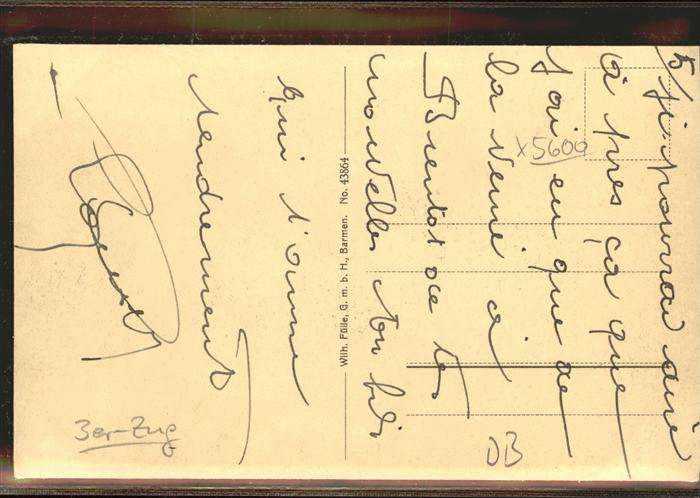 5/ je pourrai dire
après ça que
j'ai eu que de
la veine à
Bientot de tes
nouvelles ton fils
qui t'aime
tendrement
x5600
DB
3er-Zug
Wilh. Fülle, G. m. b. H., Barmen. No. 43864